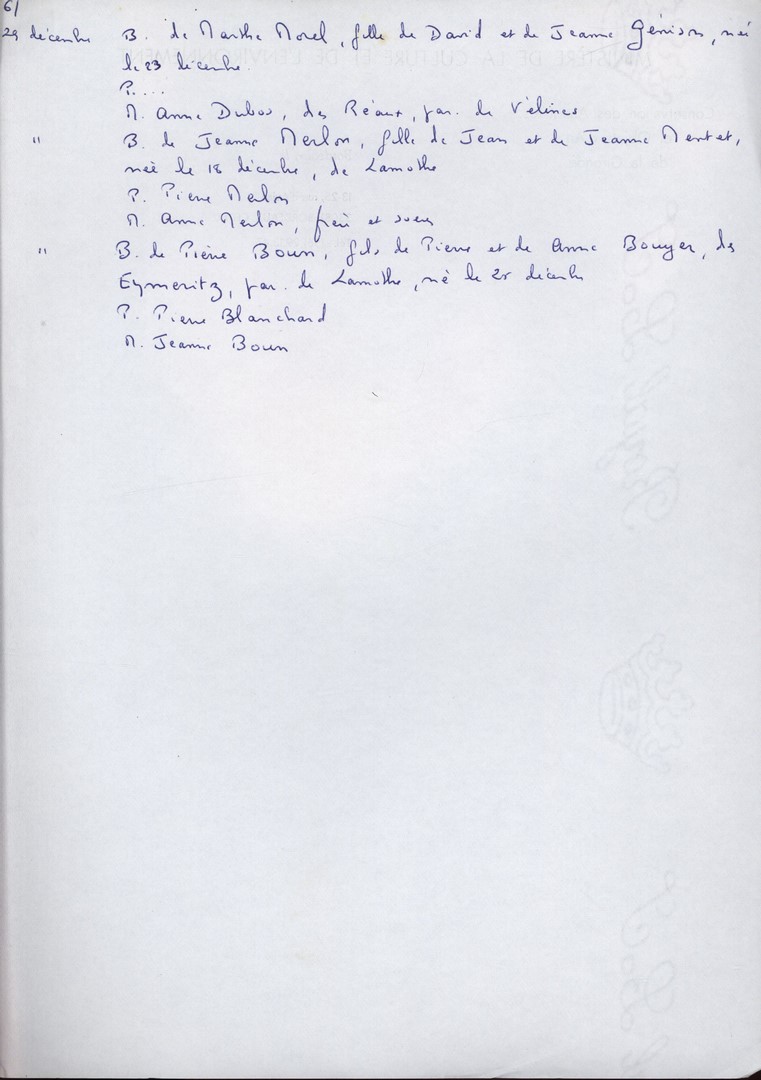 6/
29 décembre B. de Marthe Morel, fille de David et de Jeanne Génison, née
le 23 décembre.
P. ....
M. Anne Dubos, des Réaux, par. de Vélines
" B. de Jeanne Merlon, fille de Jean et de Jeanne Mentet,
née le 18 décembre, de Lamothe
P. Pierre Merlon
M. Anne Merlon, frère et soeur
" B. de Pierre Boun, fils de Pierre et de Anne Bouyer, des
Eymeritz, par. de Lamothe, né le 25 décembre
P. Pierre Blanchard
M. Jeanne Boun
MINISTÈRE DE LA CULTURE ET DE L'ENVIRONNEMENT